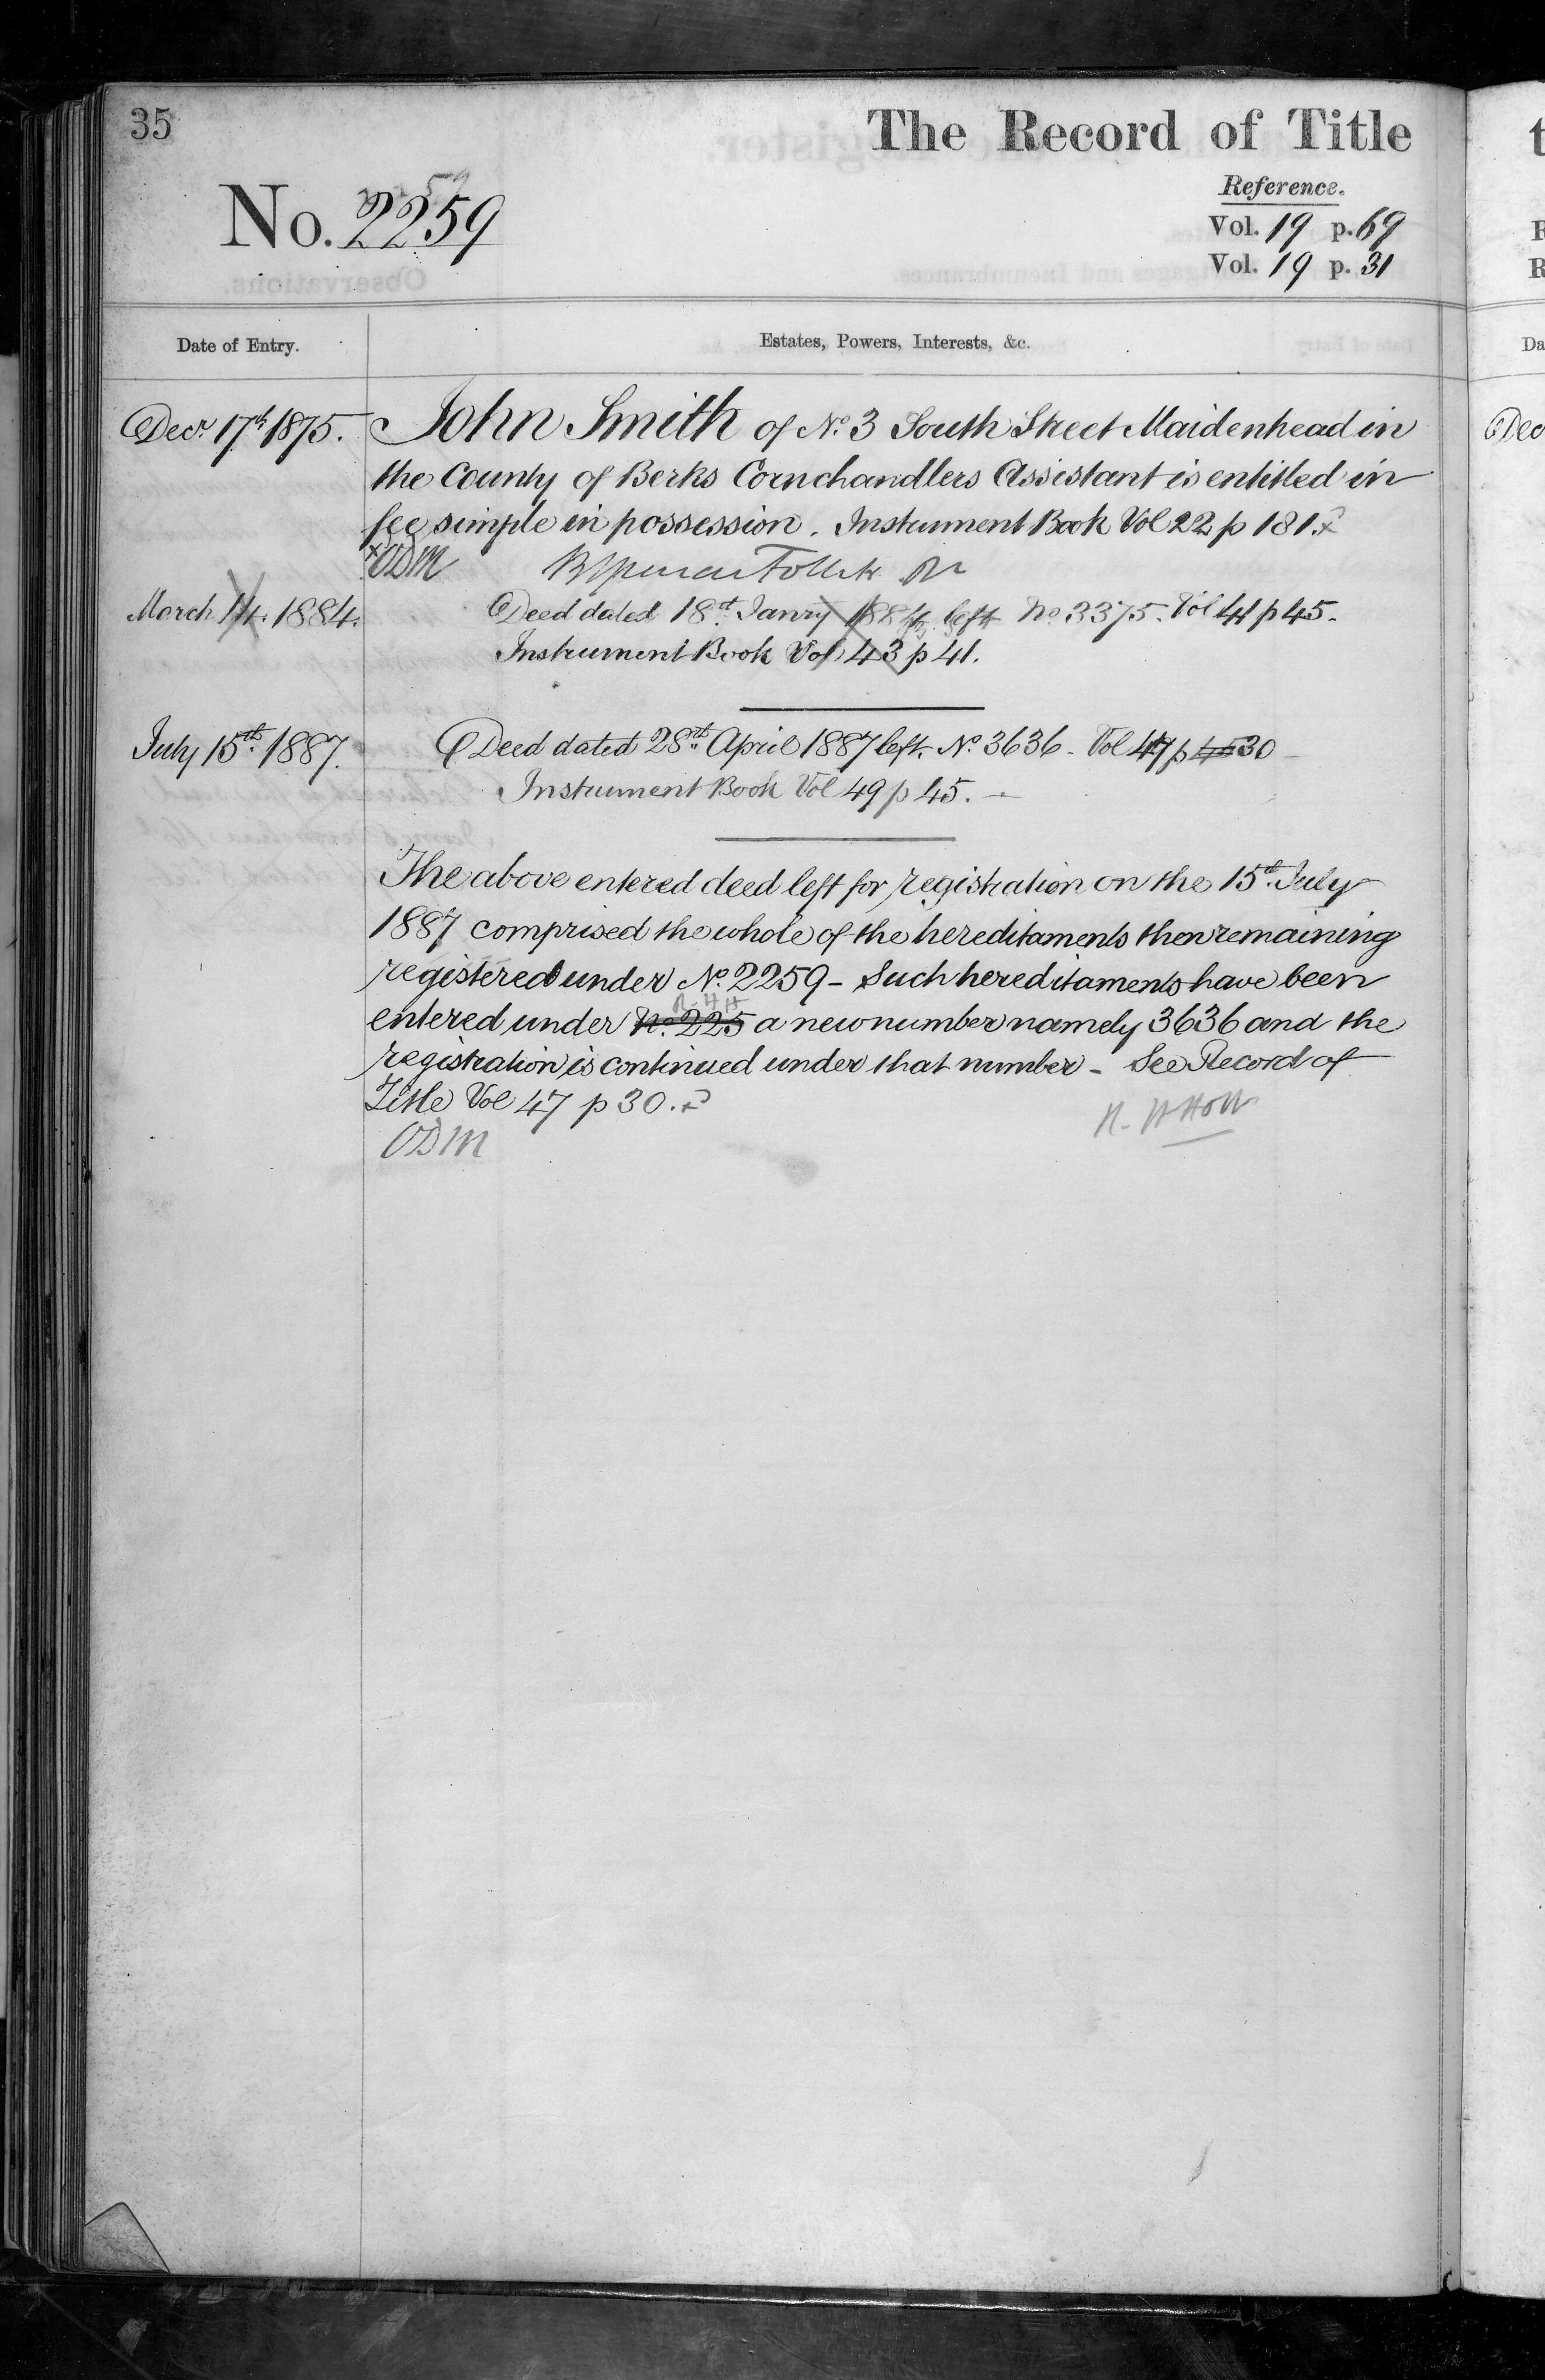 35
The Record of Title
Reference.
No. 2259
Vol. 19 p. 69
Vol. 19 p. 31
Date of Entry.
Estates, Powers, Interests, &c.
Decr 17th 1875.
John Smith of No. 3 South Street Maidenhead in
the County of Berks Cornchandlers Assistant is entitled in
fee simple in possession. Instrument Book Vol 22 p 181.x
x ODM
March 14. 1884.
Deed dated 18th Janry 1884 left No 3375. Vol 41 p 45.
Instrument Book Vol 43 p 41.
July 15th 1887.
Deed dated 28th April 1887 left. No. 3636 - Vol 47 p 45 30
Instrument Book Vol 49 p 45. -
The above entered deed left for registration on the 15th July
1887 comprised the whole of the hereditaments then remaining
registered under No. 2259 - Such hereditaments have been
entered under No. 225 a new number namely 3636 and the
registration is continued under that number - See Record of
Title Vol 47 p 30. x
ODM
R. H Holt